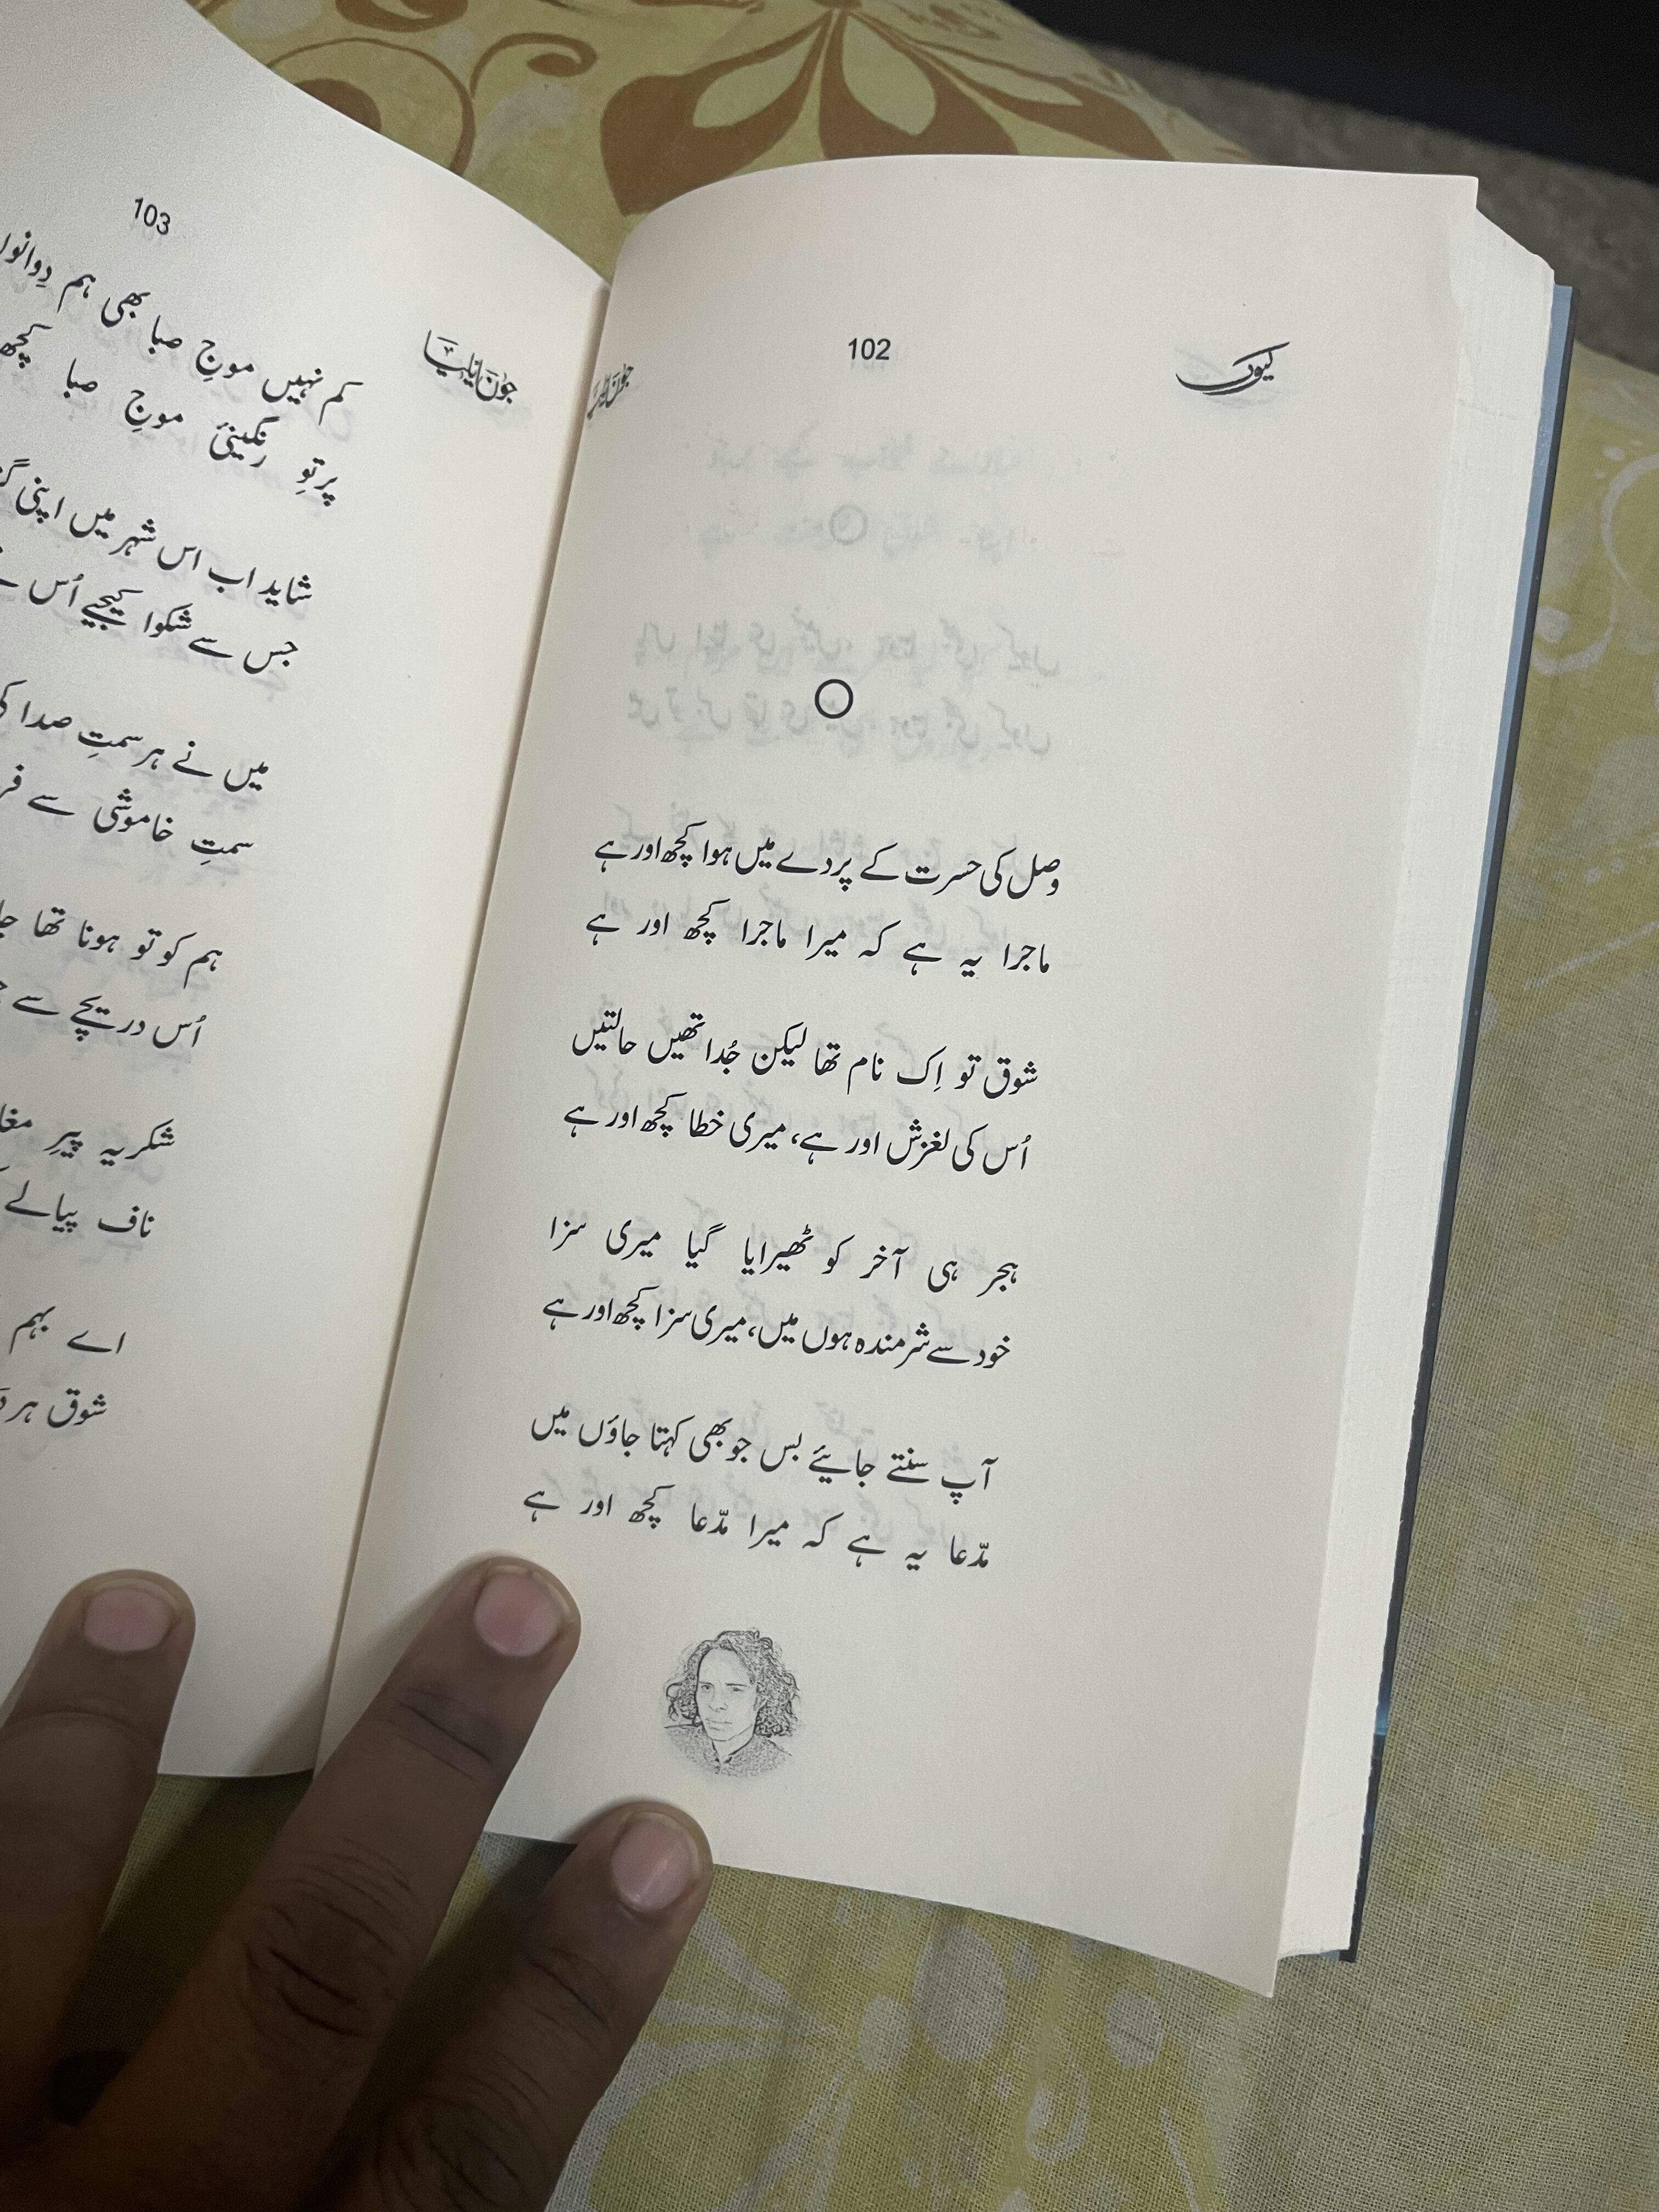 کیوں
102
جون ایلیا
وصل کی حسرت کے پردے میں ہوا کچھ اور ہے
ماجرا یہ ہے کہ میرا ماجرا کچھ اور ہے
شوق تو اِک نام تھا لیکن جُدا تھیں حالتیں
اُس کی لغزش اور ہے، میری خطا کچھ اور ہے
ہجر ہی آخر کو ٹھیرایا گیا میری سزا
خود سے شرمندہ ہوں میں، میری سزا کچھ اور ہے
آپ سنتے جایئے بس جو بھی کہتا جاؤں میں
مدّعا یہ ہے کہ میرا مدّعا کچھ اور ہے
جون ایلیا
103
کم نہیں موجِ صبا بھی ہم دِوانوں
پرتوِ رنگینیٔ موجِ صبا کچھ
شاید اب اس شہر میں اپنی
جس سے شکوا کیجیے اُس
میں نے ہر سمتِ صدا کی
سمتِ خاموشی سے
ہم کو تو ہونا تھا
اُس دریچے سے
شکریہ پیرِ
ناف پیالے
اے بہم
شوق ہر